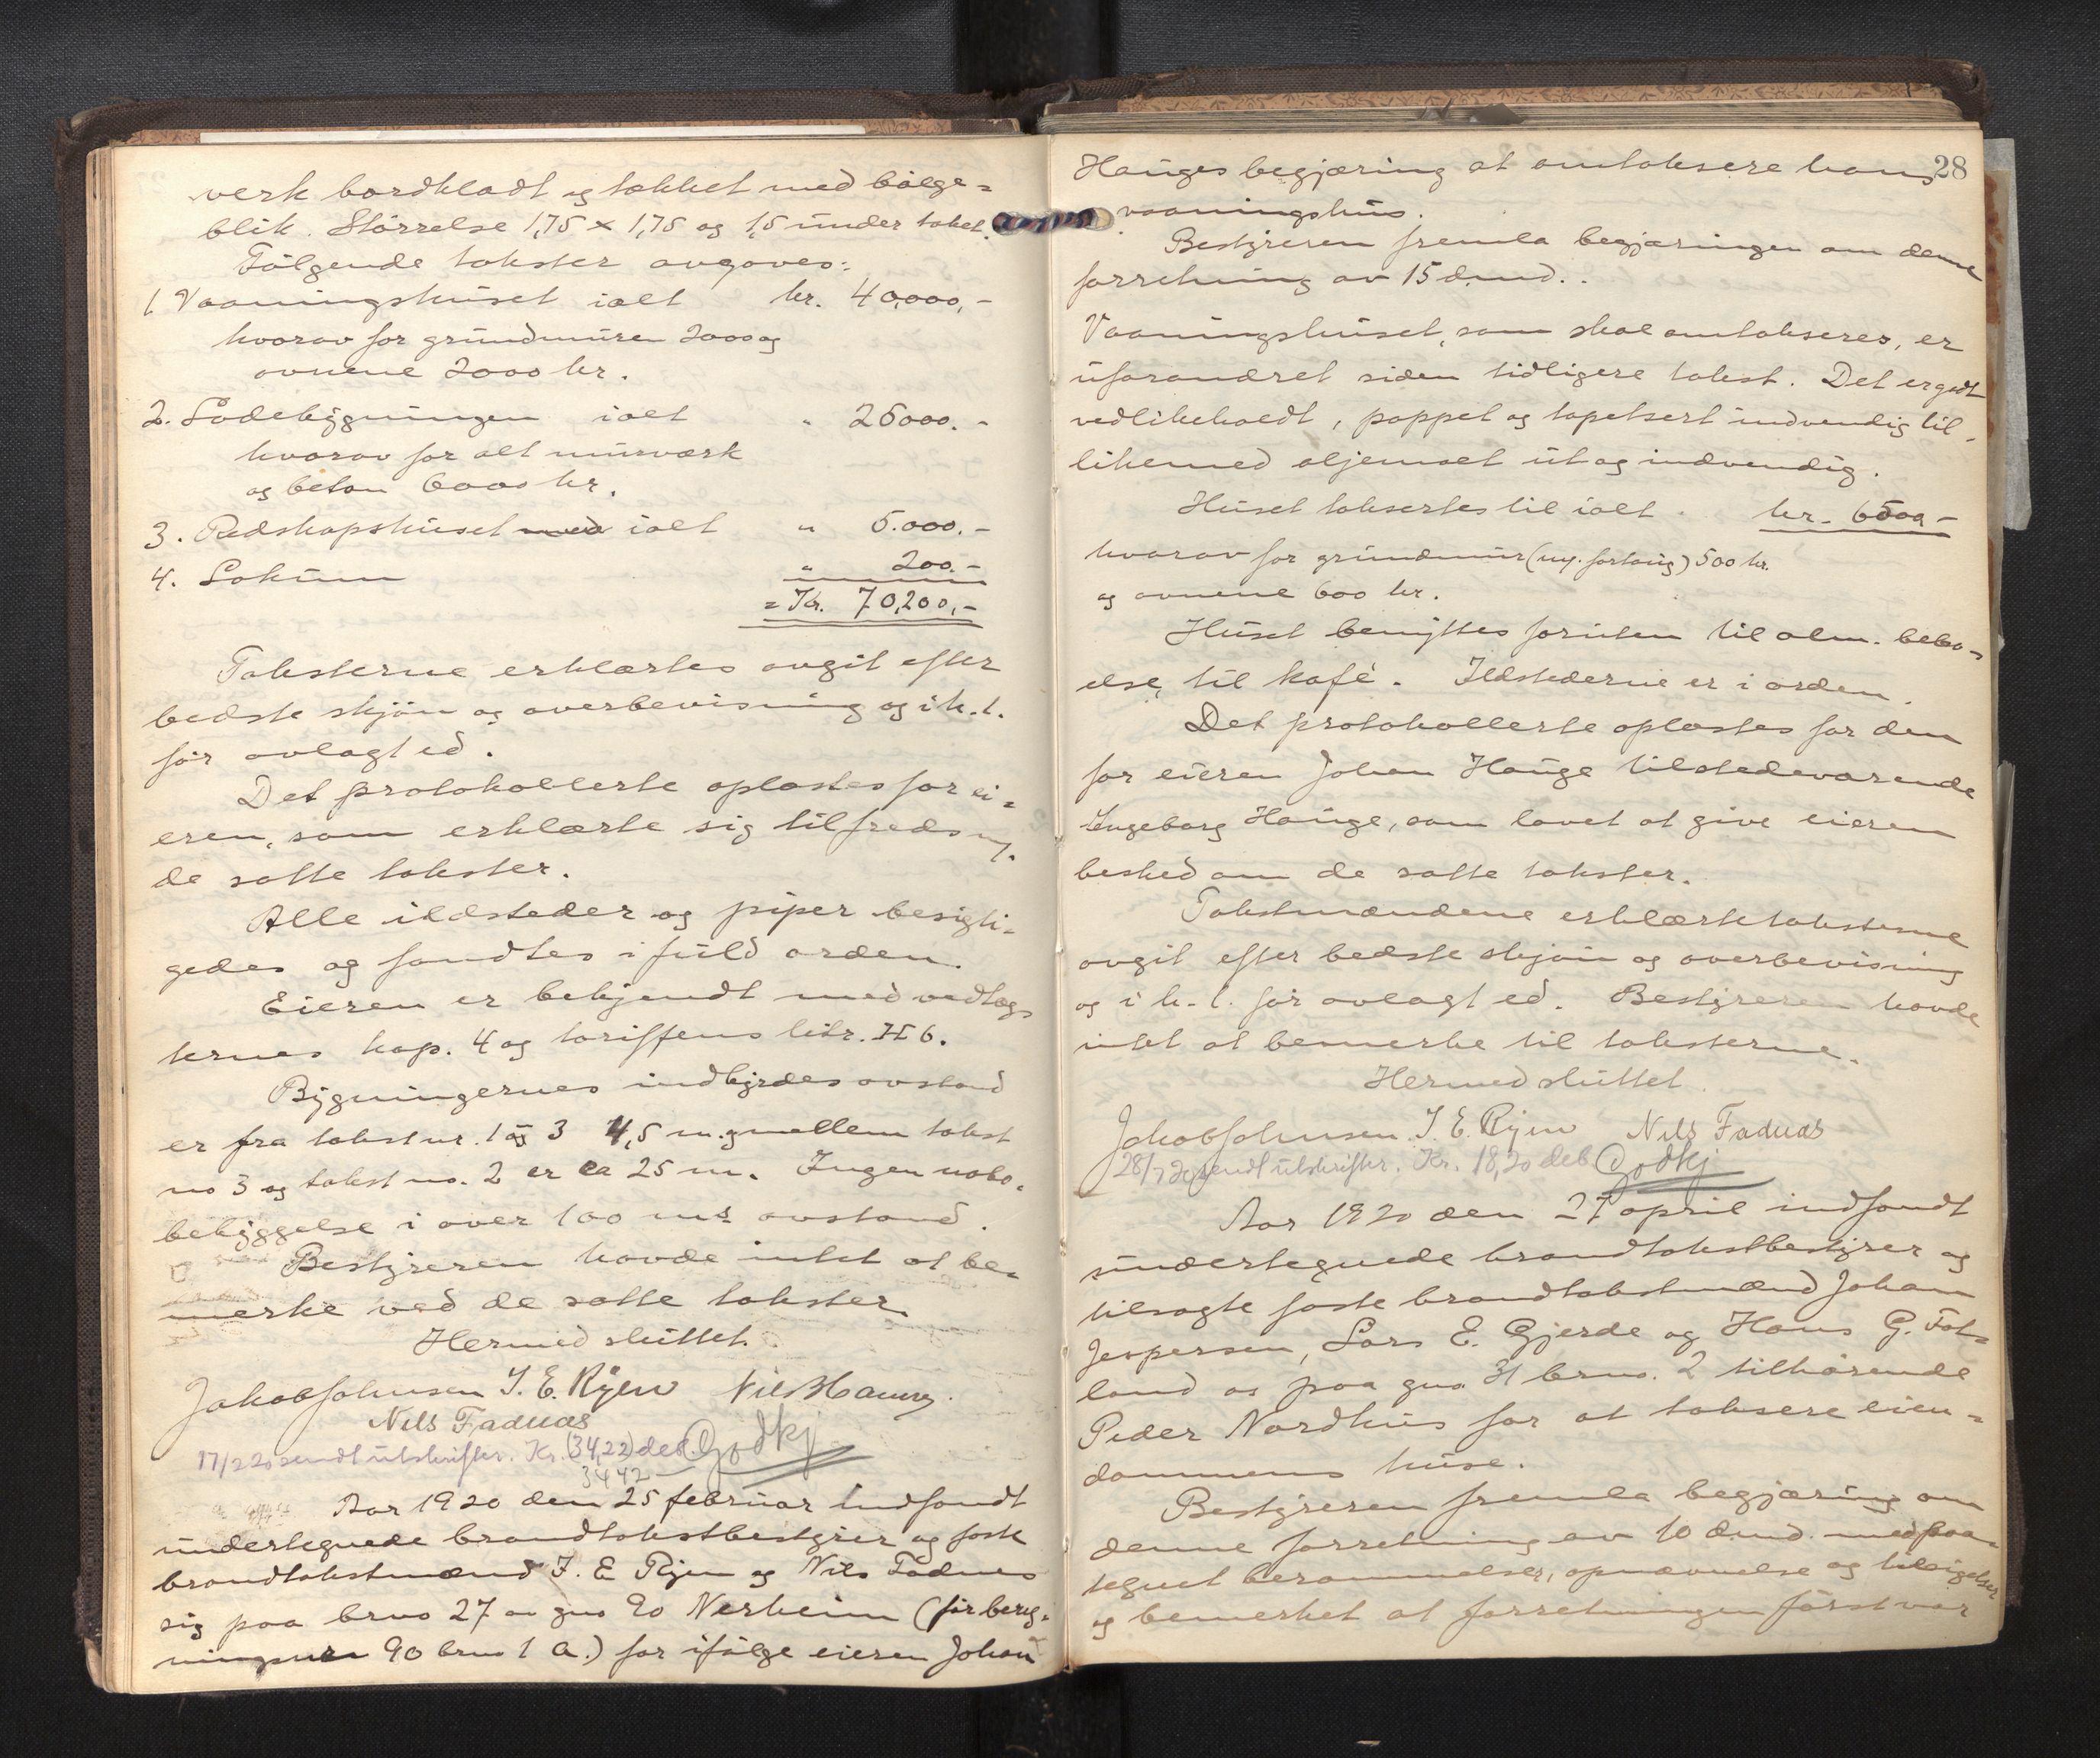 verk bordklædt og tækket med bølge-
blik. Størrelse 1,75 x 1,75 og 1,5 under taket.
Følgende takster avgaves:
1. Vaaningshuset ialt kr. 40,000,-
hvorav for grundmuren 2000 og
ovnene 2000 kr.
2. Ladebygningen ialt " 25000.-
hvorav for alt murværk
og beton 6000 kr.
3. Redskapshuset med ialt " 5.000.-
4. Lokum " 200.-
= Kr. 70,200,-
Taksterne erklærtes avgit efter
bedste skjøn og overbevisning og i h. t.
før avlagt ed.
Det protokollerte oplæstes for ei-
eren, som erklærte sig tilfreds m/
de satte takster.
Alle ildsteder og piper besigti-
gedes og fandtes i fuld orden.
Eieren er bekjendt med vedtæg-
ternes kap. 4 og tariffens litr. H 6.
Bygningernes indbyrdes avstand
er fra takst nr. 1 og 3 4,5 m. og mellem takst
no 3 og takst no. 2 er ca 25 m. Ingen nabo-
bebyggelse i over 100 m's avstand.
Bestyreren havde intet at be-
merke ved de satte takster.
Hermed sluttet.
Jakob Johnsen I. E. Ryen Nils Haug.
Nils Fadnæs
17/2 20 sendt utskrifter. Kr. (34,22) deb. Godkj
3442
Aar 1920 den 25 februar indfandt
undertegnede brandtakstbestyrer og faste
brandtakstmænd I. E Ryen og Nils Fadnes
sig paa brno 27 av gno 90 Nerheim (før
90 brno 1 a.) for ifølge eieren Johan
28
Hauges begjæring at omtaksere hans
vaaningshus.
Bestyreren fremla begjæringen om denne
forretning av 15 d.md..
Vaaningshuset, som skal omtakseres, er
uforandret siden tidligere takst. Det er godt
vedlikeholdt, pappet og tapetsert indvendig til-
likemed oljemalt ut og indvendig.
Huset taksertes til ialt. kr. 6500,-
hvorav for grundmur (ny. fortaug) 500 kr.
og ovnene 600 kr.
Huset benyttes foruten til alm. bebo-
else, til kafé. Ildstederne er i orden.
Det protokollerte oplæstes for den
for eieren Johan Hauge tilstedeværende
Ingeborg Hauge, som lovet at give eieren
besked om de satte takster.
Takstmændene erklærte taksterne
avgit efter bedste skjøn og overbevisning
og i h. t. før avlagt ed. Bestyreren havde
intet at bemerke til taksterne.
Hermed sluttet.
Jakob Johnsen. I. E. Ryen Nils Fadnæs
28/2 20 sendt utskrifter. Kr. 18,20 deb Godkj
Aar 1920 den 27 april indfandt
undertegnede brandtakstbestyrer og
tilsagte faste brandtakstmænd Johan
Jespersen, Lars E. Gjerde og Hans G. Fats-
land os paa gno. 31 brno. 2 tilhørende
Peder Nordhus for at taksere eien-
dommens huse.
Bestyreren fremla begjæring om
denne forretning av 10 d.md. med paa-
tegnet berammelse, opnævnelse og tilsigelse
og bemerket at forretningen først var